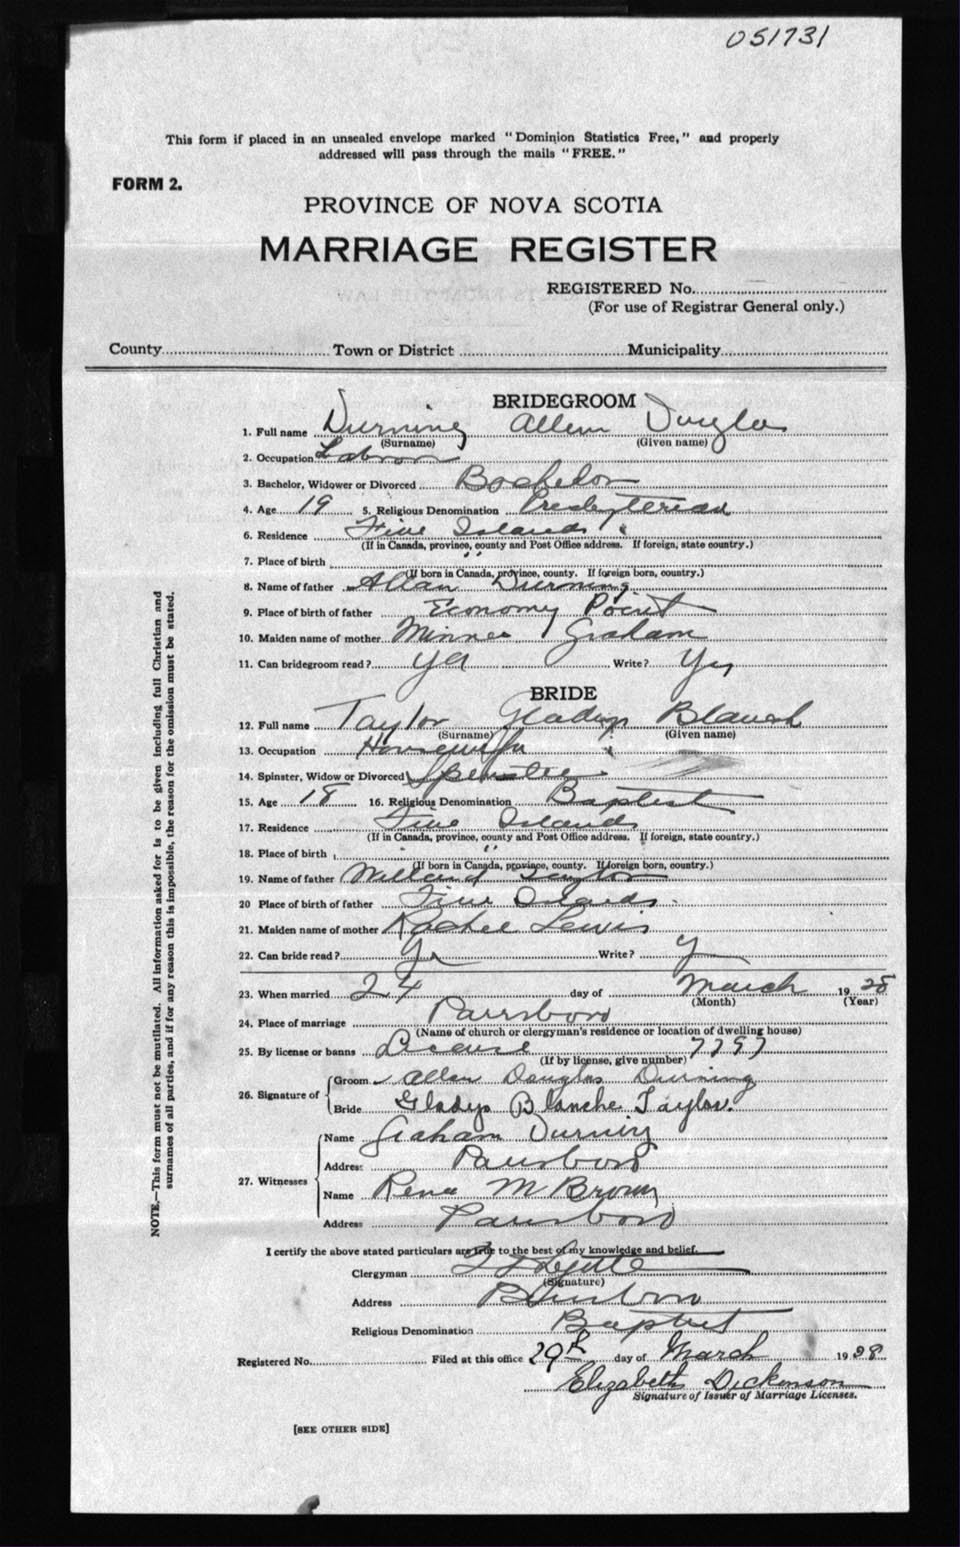 051731
This form if placed in an unsealed envelope marked "Dominion Statistics Free," and properly
addressed will pass through the mails "FREE."
FORM 2.
PROVINCE OF NOVA SCOTIA
MARRIAGE REGISTER
REGISTERED No.
(For use of Registrar General only.)
County Town or District Municipality
BRIDEGROOM
1. Full name Durning Allan Douglas
(Surname) (Given name)
2. Occupation Labron
3. Bachelor, Widower or Divorced Bachelor
4. Age 19 5. Religious Denomination Presbyterian
6. Residence Five Islands
(If in Canada, province, county and Post Office address. If foreign, state country.)
7. Place of birth " "
(If born in Canada, province, county. If foreign born, country.)
8. Name of father Allan Durning
9. Place of birth of father Economy Point
10. Maiden name of mother Minnie Graham
11. Can bridegroom read? Yes Write? Yes
BRIDE
12. Full name Taylor Gladys Blanch
(Surname) (Given name)
13. Occupation Housewife
14. Spinster, Widow or Divorced Spinster
15. Age 18 16. Religious Denomination Baptist
17. Residence Five Islands
(If in Canada, province, county and Post Office address. If foreign, state country.)
18. Place of birth " "
(If born in Canada, province, county. If foreign born, country.)
19. Name of father Willard Taylor
20 Place of birth of father Five Islands
21. Maiden name of mother Rachel Lewis
22. Can bride read? Yes Write? Y
23. When married 24 day of March 1928
(Month) (Year)
24. Place of marriage Parrsboro
(Name of church or clergyman's residence or location of dwelling house)
25. By license or banns License 7797
(If by license, give number)
26. Signature of Groom Allan Douglas Durning
Bride Gladys Blanche Taylor.
27. Witnesses Name Graham Durning
Address Parrsboro
Name Rena M Brown
Address Parrsboro
I certify the above stated particulars are true to the best of my knowledge and belief.
Clergyman
(Signature)
Address Parrsboro
Religious Denomination Baptist
Registered No. Filed at this office 29th day of March 1928
Elizabeth Dickinson
Signature of Issuer of Marriage Licenses.
[SEE OTHER SIDE]
NOTE.—This form must not be mutilated. All information asked for is to be given including full Christian and
surnames of all parties, and if for any reason this is impossible, the reason for the omission must be stated.